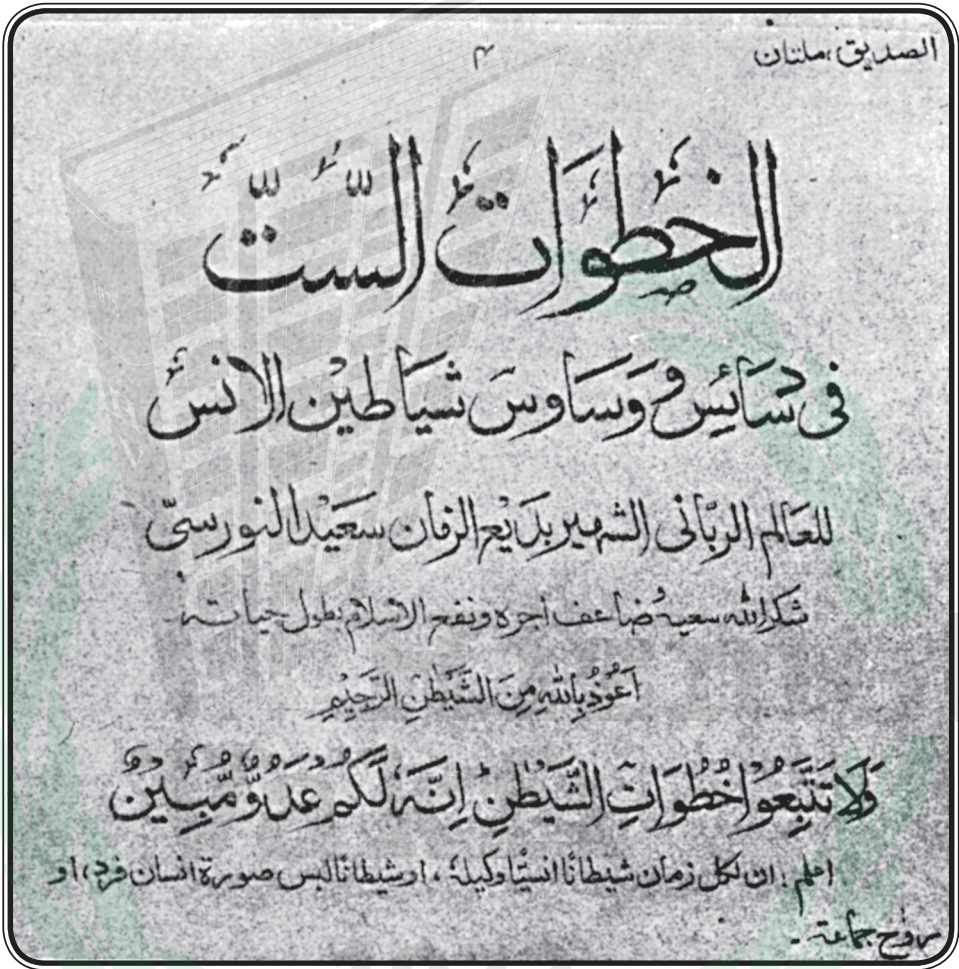 الصديق، ملتان
م
الخطوات الستّ
فى دسائس و وساوس شياطين الانس
للعالم الربّانى الشهير بديع الزمان سعيد النورسىّ
شكرالله سعيه ضاعف اجره ونفع الاسلام بطول حياته
اَعُوْذُ بِاللهِ مِنَ الشَّيْطٰنِ الرَّجِيْمِ
وَلَا تَتَّبِعُوْا خُطُوَاتِ الشَّيْطٰنِ اِنَّهٗ لَكُمْ عَدُوٌّ مُّبِيْنٌ
اعلم: ان لكل زمان شيطانًا انسيًّا وكيلهٗ، او شيطانًا لبس صورة انسان فرد، او
روح جماعة ـ